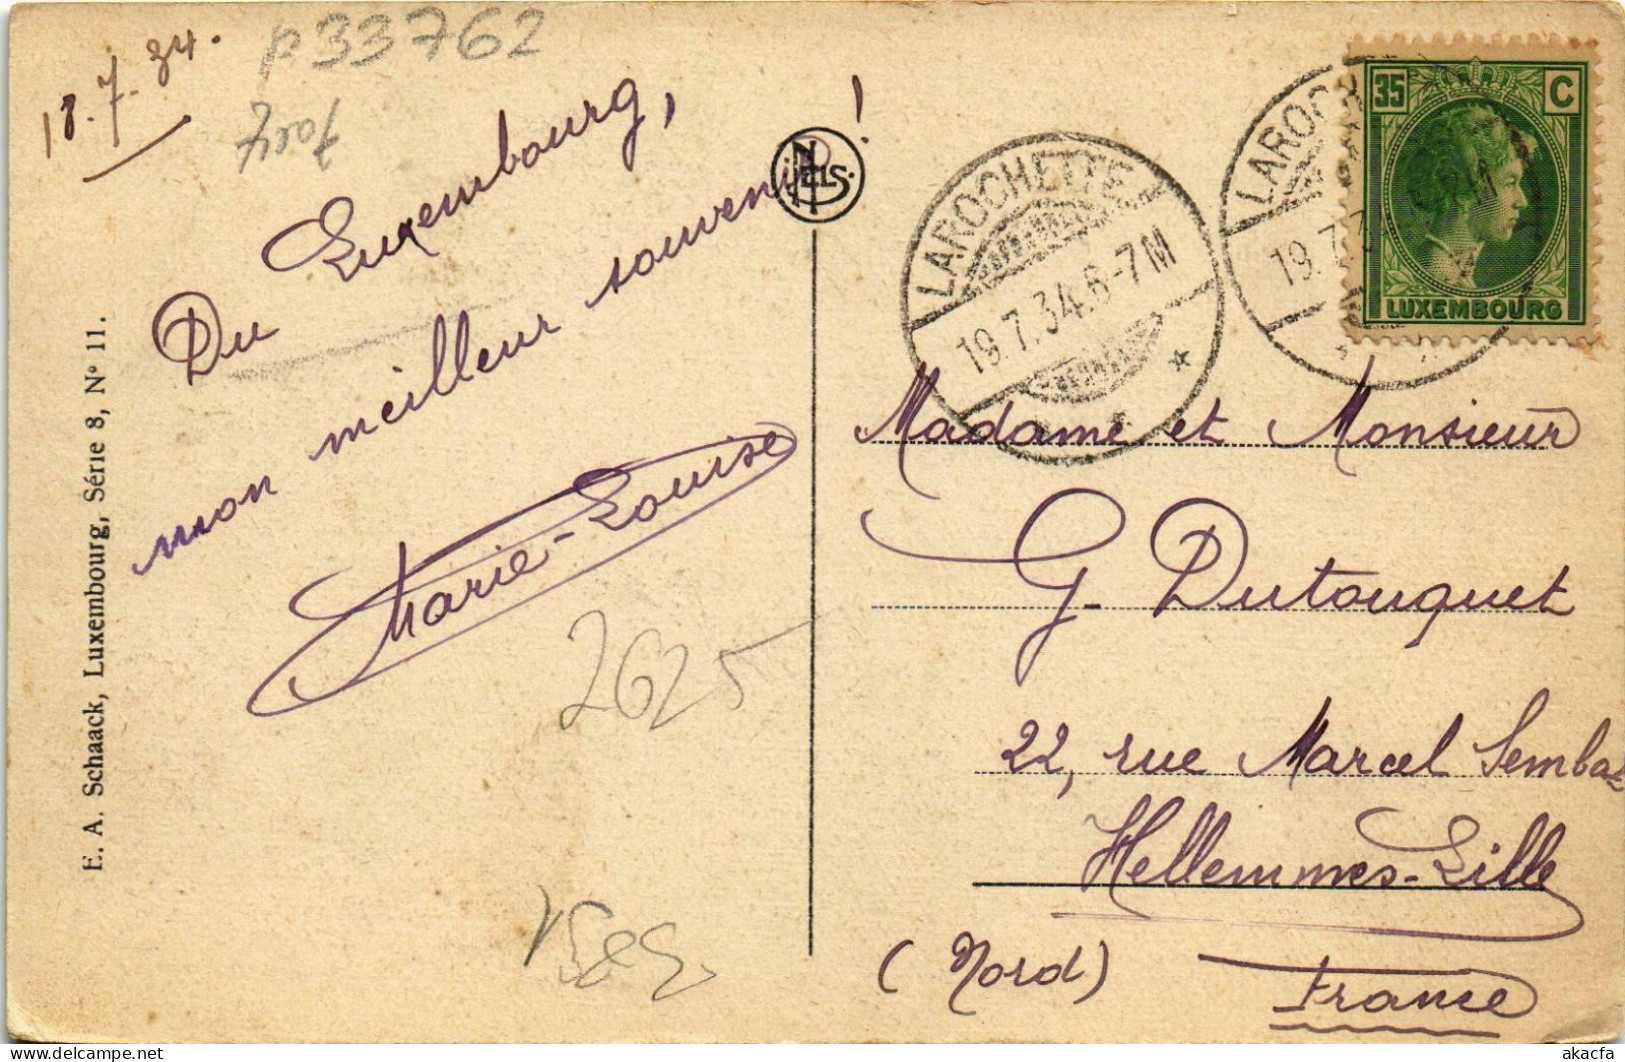 18.7.34.
p33762
Du Luxembourg,
mon meilleur souvenir!
Marie-Louise
2625
E. A. Schaack, Luxembourg, Série 8, N° 11.
NELS.
LAROCHETTE
19.7.34.6-7M
LAROCH
19.7
35 C
LUXEMBOURG
Madame et Monsieur
G. Dutouquet
22, rue Marcel Sembat
Hellemmes-Lille
(Nord) France
akacfa